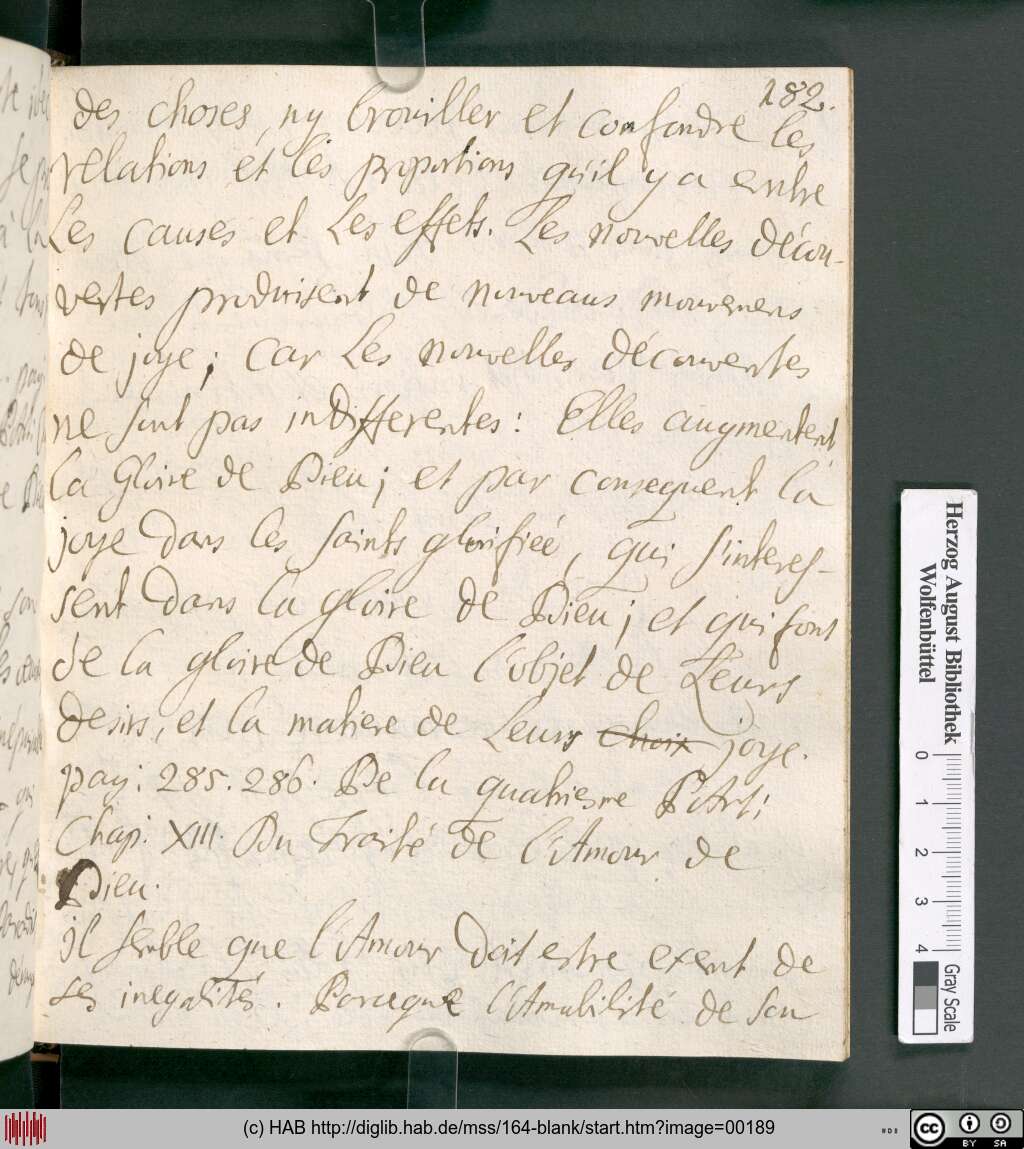 182.
des choses, ny broviller et confondre les
relations et les proportions qu'il y a entre
Les causes et Les effets. Les nouvelles décou-
vertes produisent de nouveaus mouvemens
de joye; car Les nouvelles découvertes
ne sont pas indifferentes: Elles augmentent
la Gloire de Dieu; et par consequent la
joye dans les saints glorifiéé, qui s'interes-
sent dans la gloire de Dieu; et qui font
de la gloire de Dieu l'objet de Leurs
desirs, et la matiere de Leurs choix joye.
pag: 285. 286. De la quatriesme PArt;
Chap. XIII. Du Traité de l'Amour de
Dieu.
il semble que l'Amour doit estre exent de
ses inegalités. Parceque l'Amabilité de son
Herzog August Bibliothek
Wolfenbüttel
0 1 2 3 4
Gray Scale
(c) HAB http://diglib.hab.de/mss/164-blank/start.htm?image=00189
cc BY SA